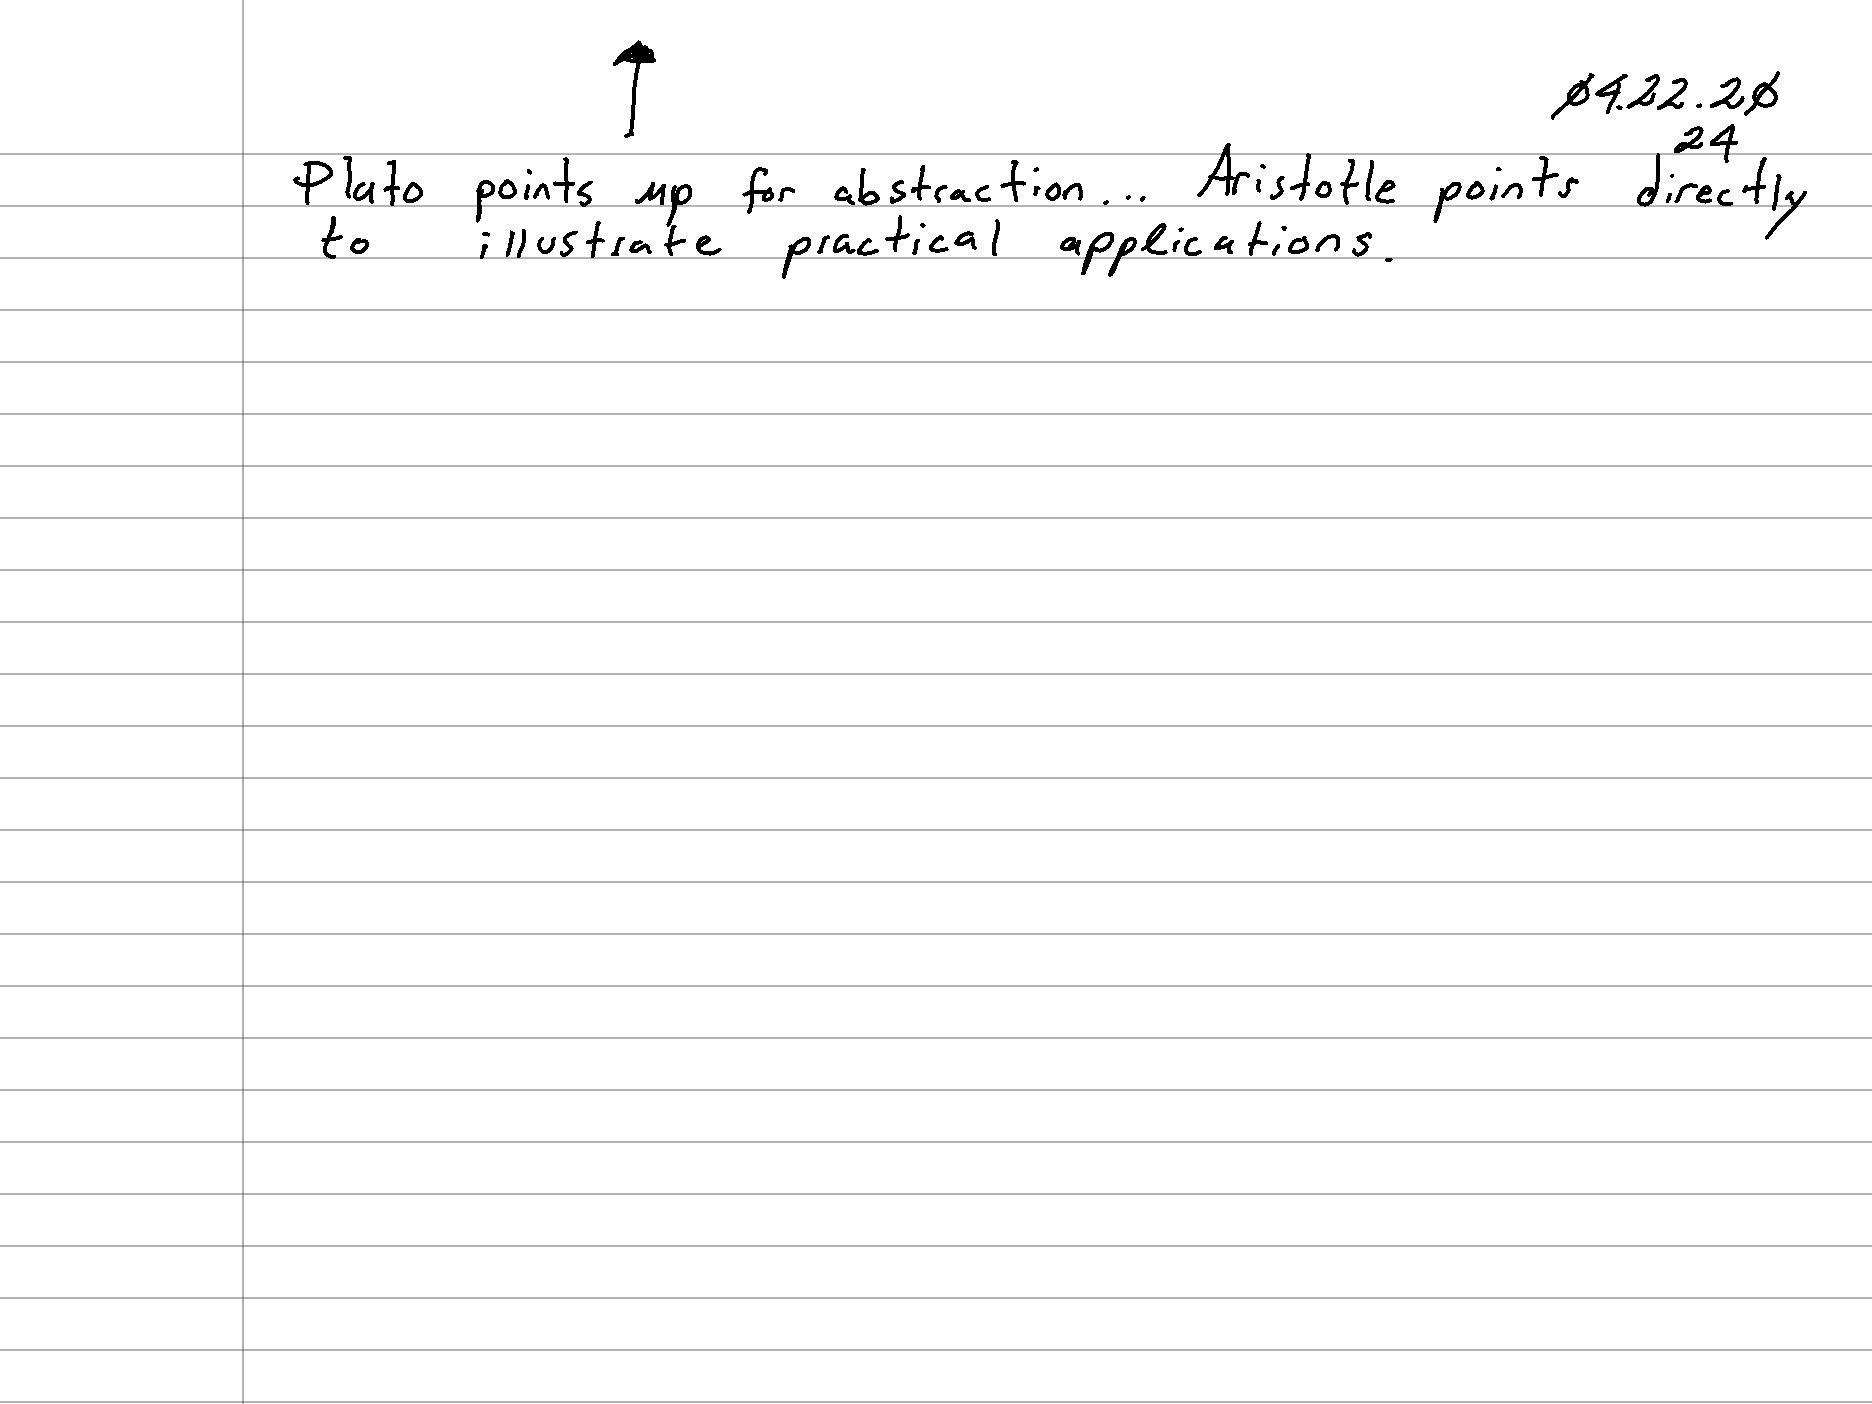 04.22.20
24
Plato points up for abstraction... Aristotle points directly
to illustrate practical applications.